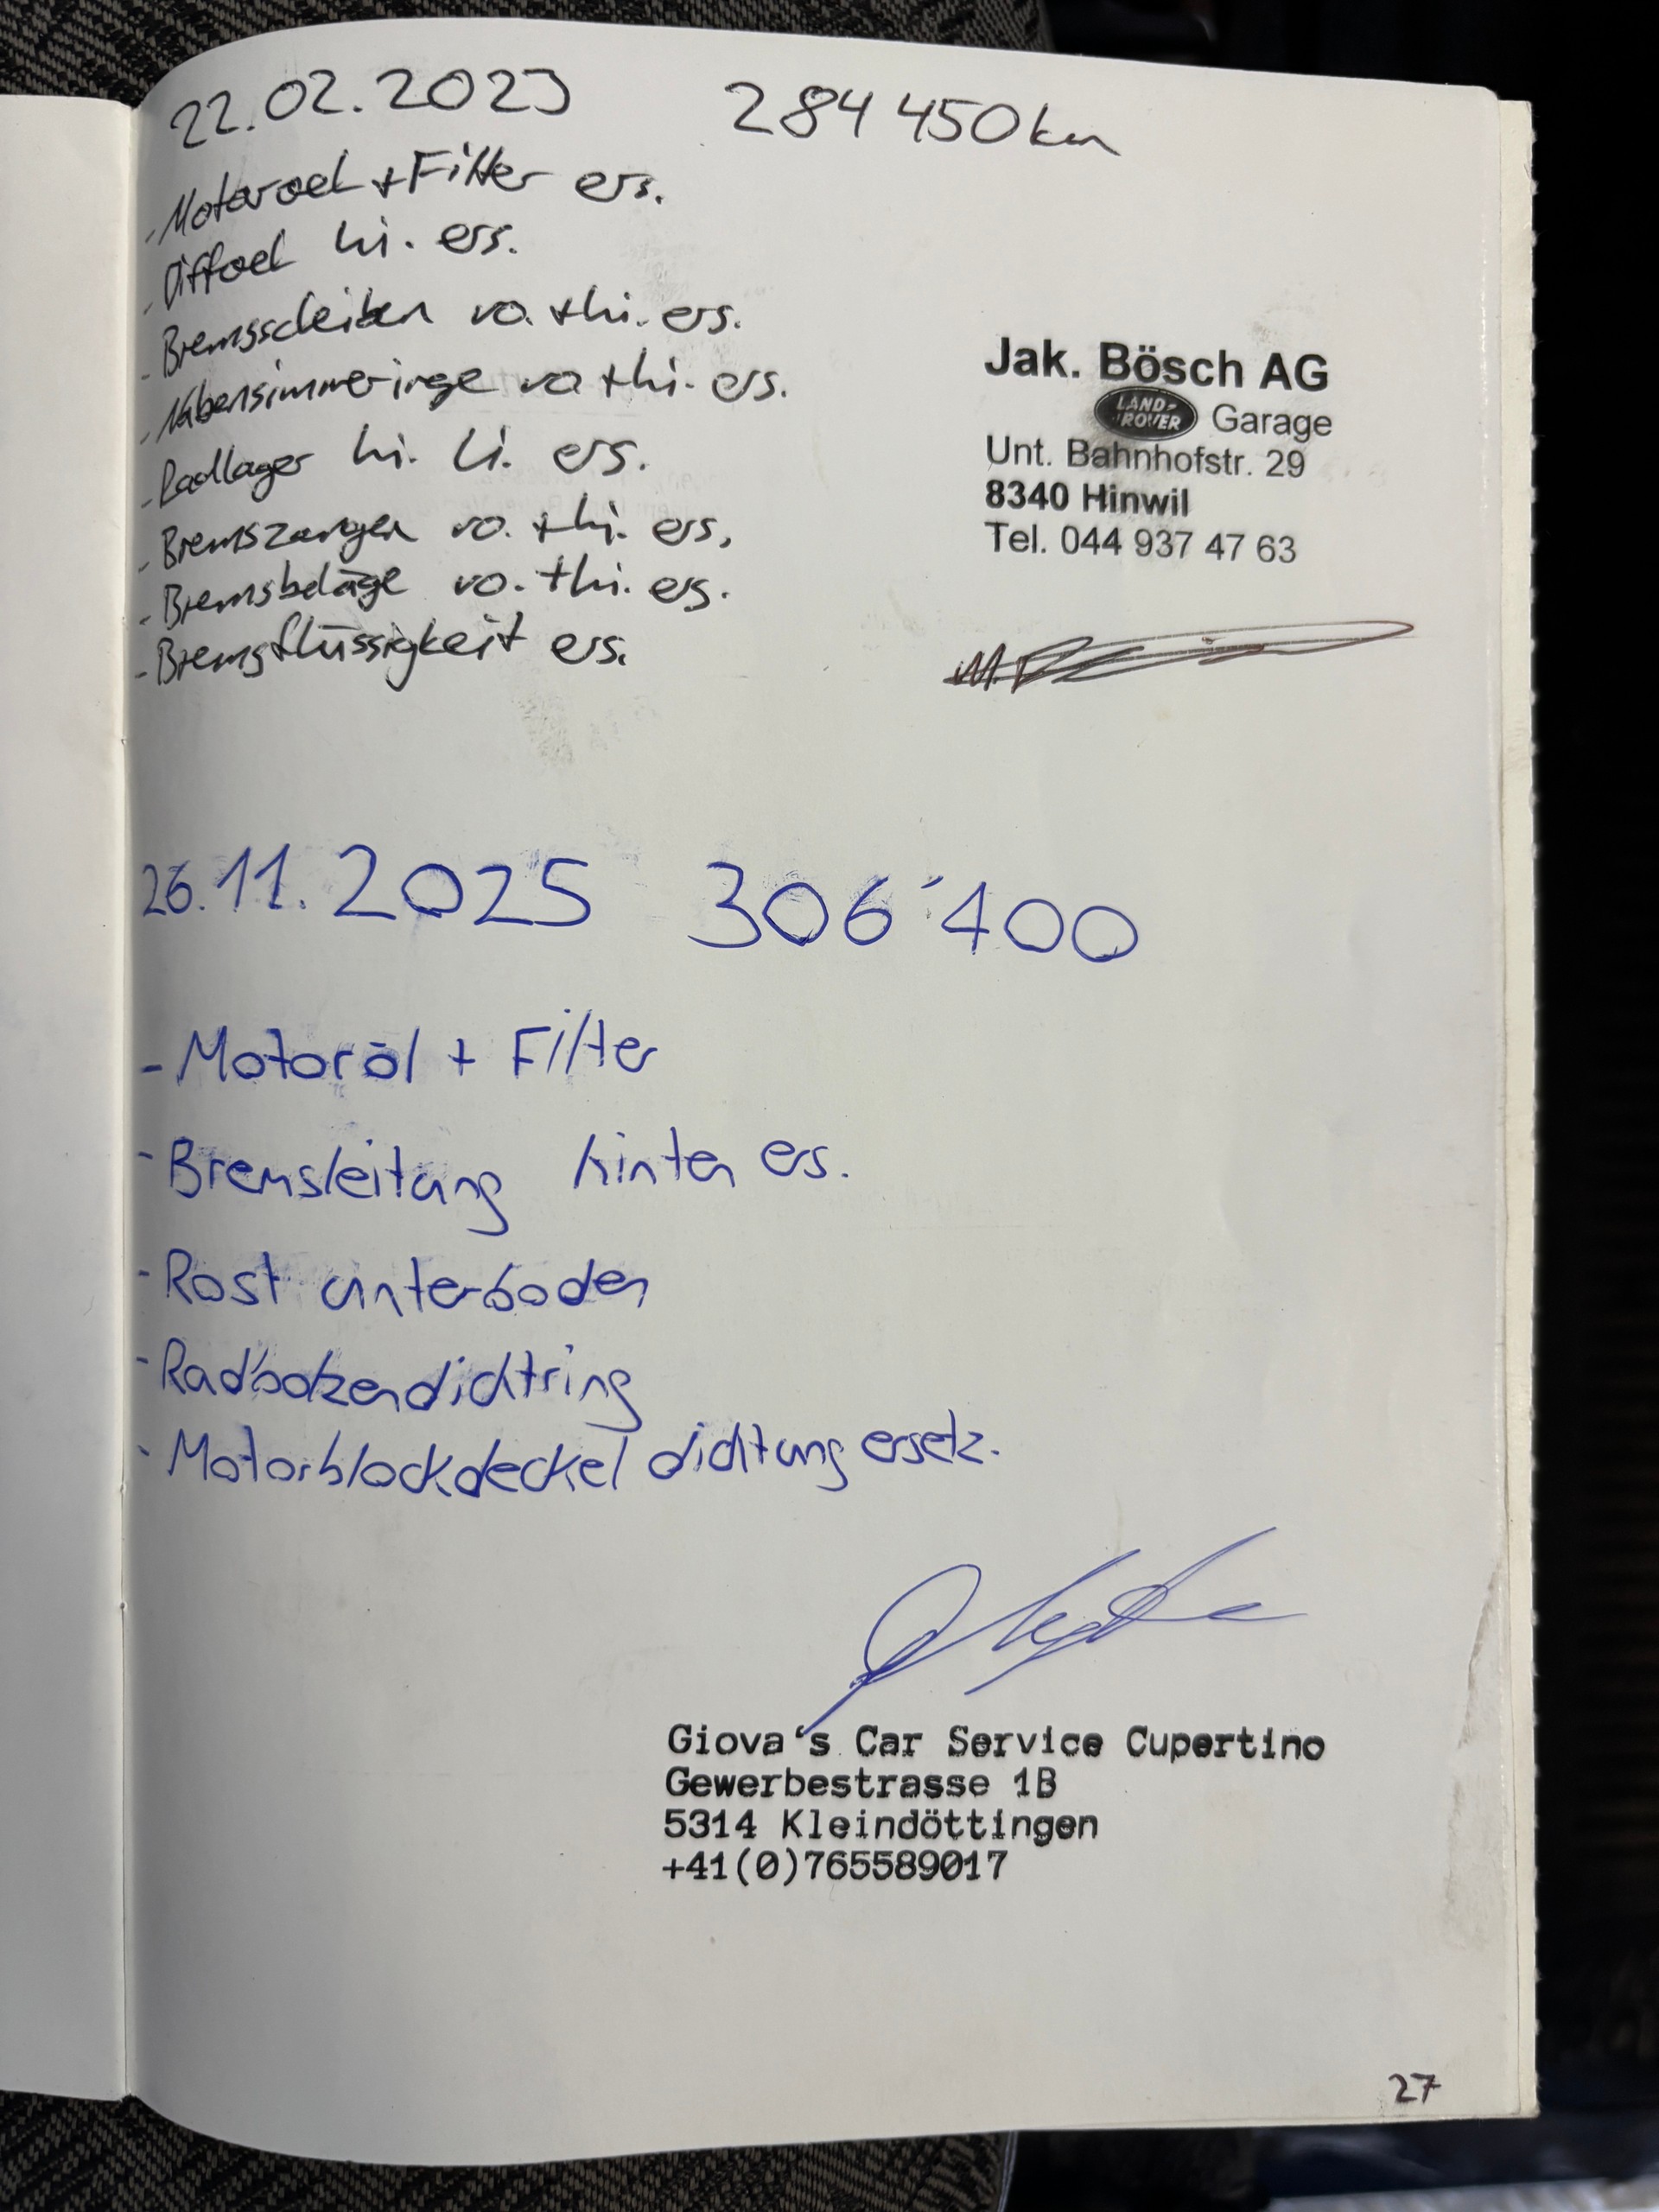 22.02.2023 284 450 km
- Motoroel + Filter ers.
- Diffoel hi. ers.
- Bremsscheiben vo. + hi. ers.
- Nabensimmeringe vo + hi. ers.
- Radlager hi. li. ers.
- Bremszangen vo. + hi. ers.
- Bremsbeläge vo. + hi. ers.
- Bremsflüssigkeit ers.
Jak. Bösch AG
LAND-
ROVER
Garage
Unt. Bahnhofstr. 29
8340 Hinwil
Tel. 044 937 47 63
26.11.2025 306'400
- Motoröl + Filter
- Bremsleitung hinten ers.
- Rost unterboden
- Radbolzendichtring
- Motorblockdeckel dichtung ersetz.
Giova's Car Service Cupertino
Gewerbestrasse 1B
5314 Kleindöttingen
+41(0)765589017
27